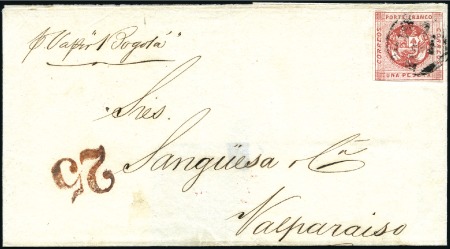 p. Vapor "Bogotá"
PORTE FRANCO
CORREOS
CORREOS
UNA PESETA
Sres.
Sangüesa & Cª
25
Valparaiso